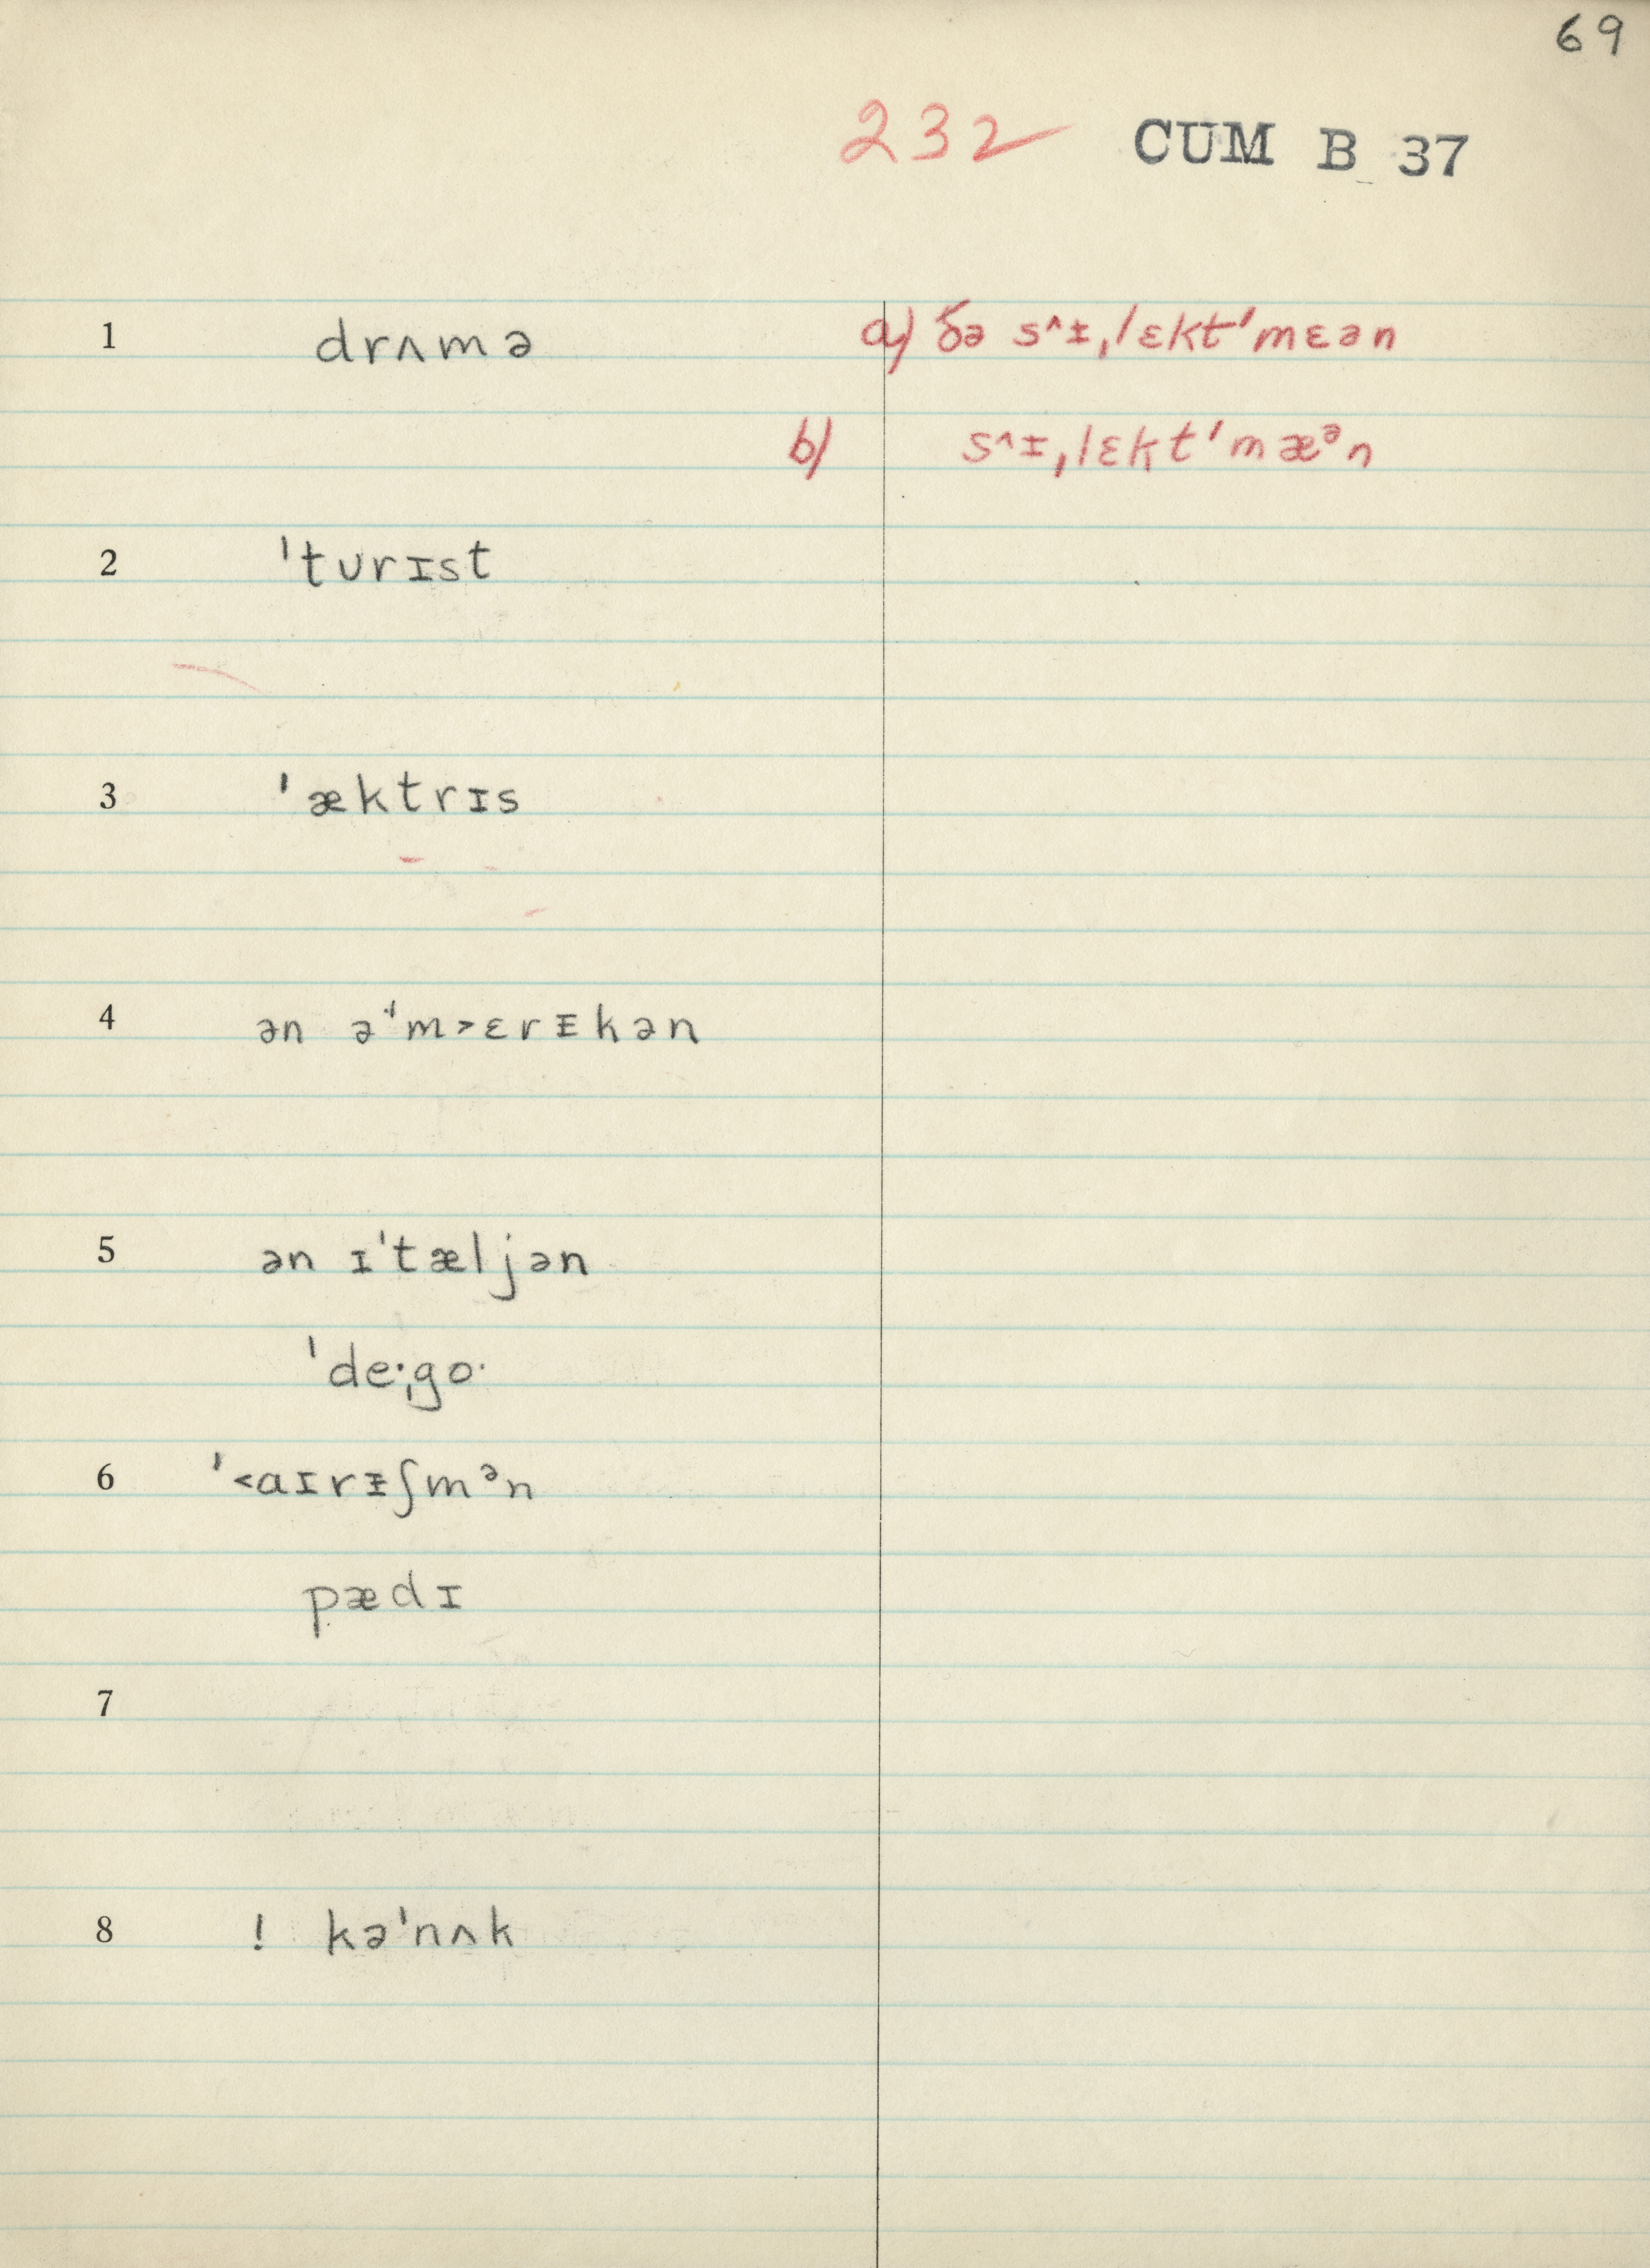 69
232 CUM B 37
1 drʌmə a) ðə s^ᵻˌlɛkt'mɛən
b) s^ᵻˌlɛkt'mæᵊn
2 ˈtʊrɪst
3 ˈæktrɪs
4 ən əˈm>ɛrᵻkən
5 ən ɪˈtæljən
ˈdeˑˌgoˑ
6 ˈ<aɪrᵻʃmᵊn
pædɪ
7
8 ! kəˈnʌk